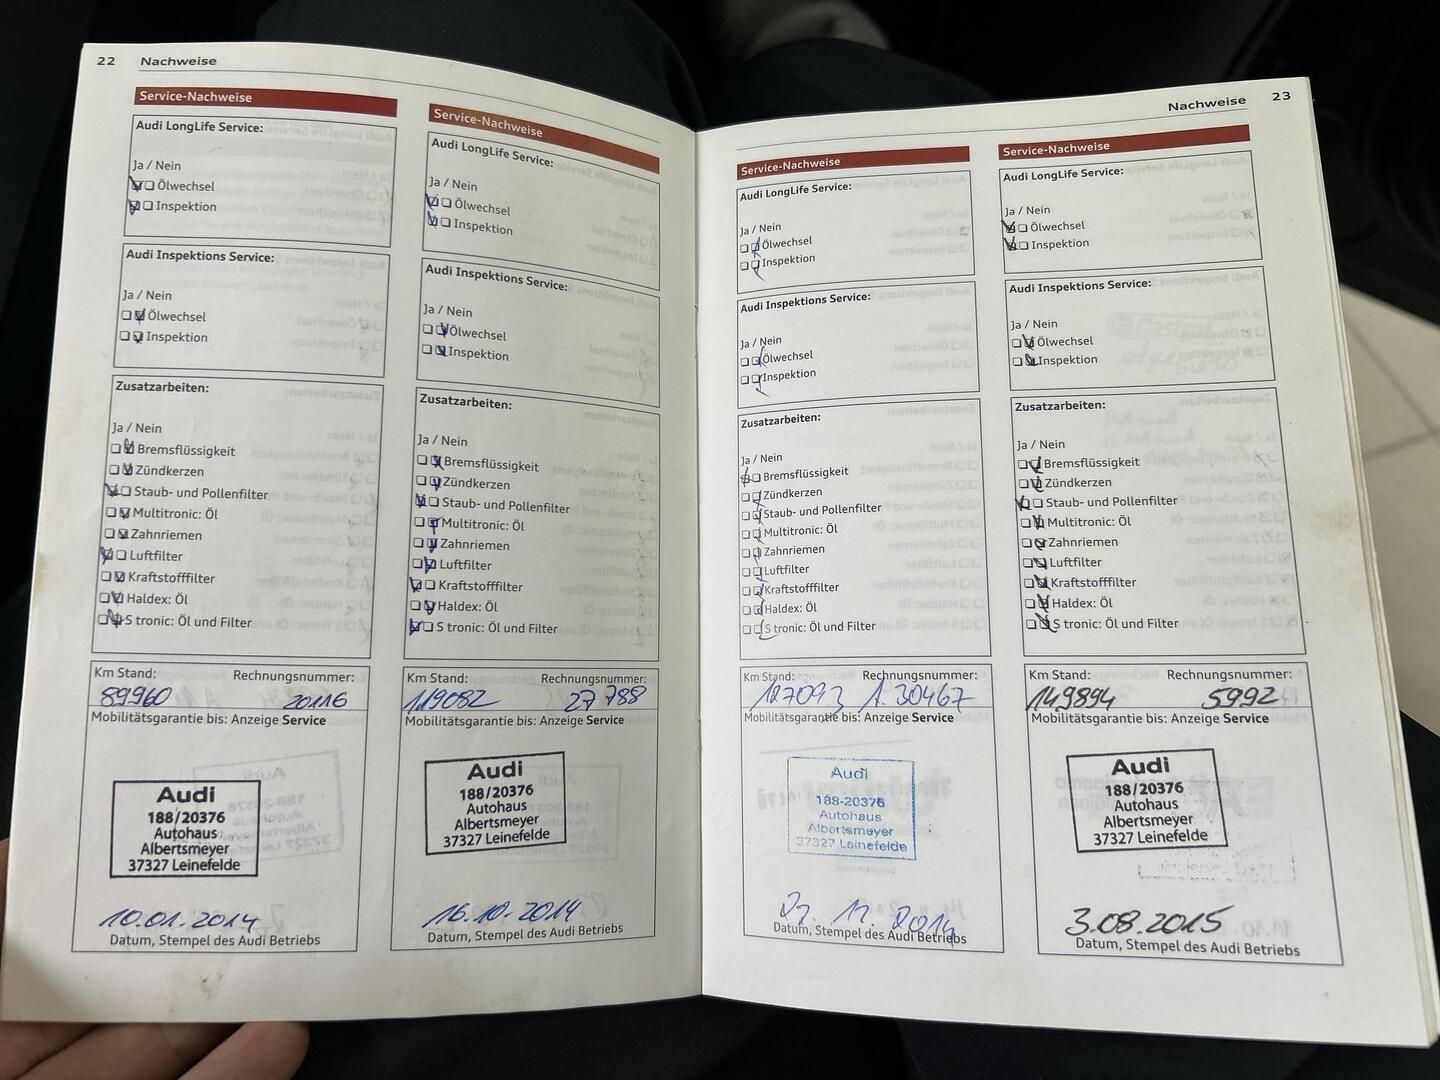 22 Nachweise
Service-Nachweise
Audi LongLife Service:
Ja / Nein
Ölwechsel
Inspektion
Audi Inspektions Service:
Ja / Nein
Ölwechsel
Inspektion
Zusatzarbeiten:
Ja / Nein
Bremsflüssigkeit
Zündkerzen
Staub- und Pollenfilter
Multitronic: Öl
Zahnriemen
Luftfilter
Kraftstofffilter
Haldex: Öl
S tronic: Öl und Filter
Km Stand: Rechnungsnummer:
89960 20116
Mobilitätsgarantie bis: Anzeige Service
Audi
188/20376
Autohaus
Albertsmeyer
37327 Leinefelde
10.01.2014
Datum, Stempel des Audi Betriebs
Service-Nachweise
Audi LongLife Service:
Ja / Nein
Ölwechsel
Inspektion
Audi Inspektions Service:
Ja / Nein
Ölwechsel
Inspektion
Zusatzarbeiten:
Ja / Nein
Bremsflüssigkeit
Zündkerzen
Staub- und Pollenfilter
Multitronic: Öl
Zahnriemen
Luftfilter
Kraftstofffilter
Haldex: Öl
S tronic: Öl und Filter
Km Stand: Rechnungsnummer:
119082 27788
Mobilitätsgarantie bis: Anzeige Service
Audi
188/20376
Autohaus
Albertsmeyer
37327 Leinefelde
16.10.2014
Datum, Stempel des Audi Betriebs
Nachweise 23
Service-Nachweise
Audi LongLife Service:
Ja / Nein
Ölwechsel
Inspektion
Audi Inspektions Service:
Ja / Nein
Ölwechsel
Inspektion
Zusatzarbeiten:
Ja / Nein
Bremsflüssigkeit
Zündkerzen
Staub- und Pollenfilter
Multitronic: Öl
Zahnriemen
Luftfilter
Kraftstofffilter
Haldex: Öl
S tronic: Öl und Filter
Km Stand: Rechnungsnummer:
127093 1.30467
Mobilitätsgarantie bis: Anzeige Service
Audi
188-20376
Autohaus
Albertsmeyer
37327 Leinefelde
Datum, Stempel des Audi Betriebs
Service-Nachweise
Audi LongLife Service:
Ja / Nein
Ölwechsel
Inspektion
Audi Inspektions Service:
Ja / Nein
Ölwechsel
Inspektion
Zusatzarbeiten:
Ja / Nein
Bremsflüssigkeit
Zündkerzen
Staub- und Pollenfilter
Multitronic: Öl
Zahnriemen
Luftfilter
Kraftstofffilter
Haldex: Öl
S tronic: Öl und Filter
Km Stand: Rechnungsnummer:
149894 5992
Mobilitätsgarantie bis: Anzeige Service
Audi
188/20376
Autohaus
Albertsmeyer
37327 Leinefelde
3.08.2015
Datum, Stempel des Audi Betriebs